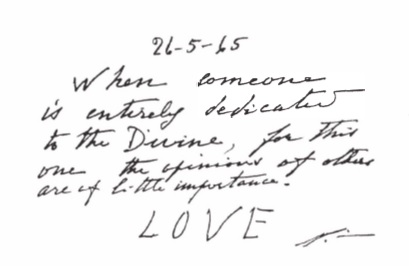 26-5-65
When someone
is entirely dedicated
to the Divine, for this
one the opinions of others
are of little importance.
LOVE